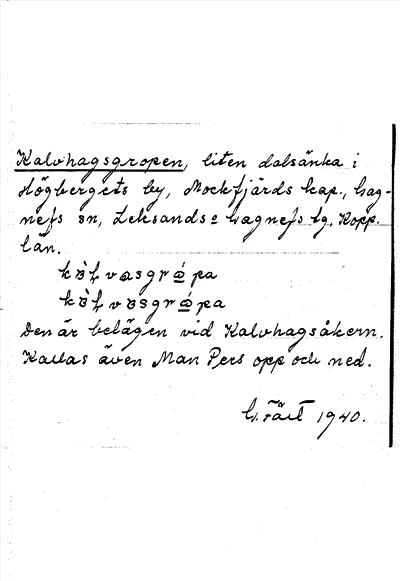 Kalvhagsgropen, liten dalsänka i
Högbergets by, Mockfjärds kap., Gag-
nefs sn, Leksands o Gagnefs tg, Kopp.
län.
Den är belägen vid Kalvhagsåkern.
Kallas även Man Pers opp och ned.
G. 1940.